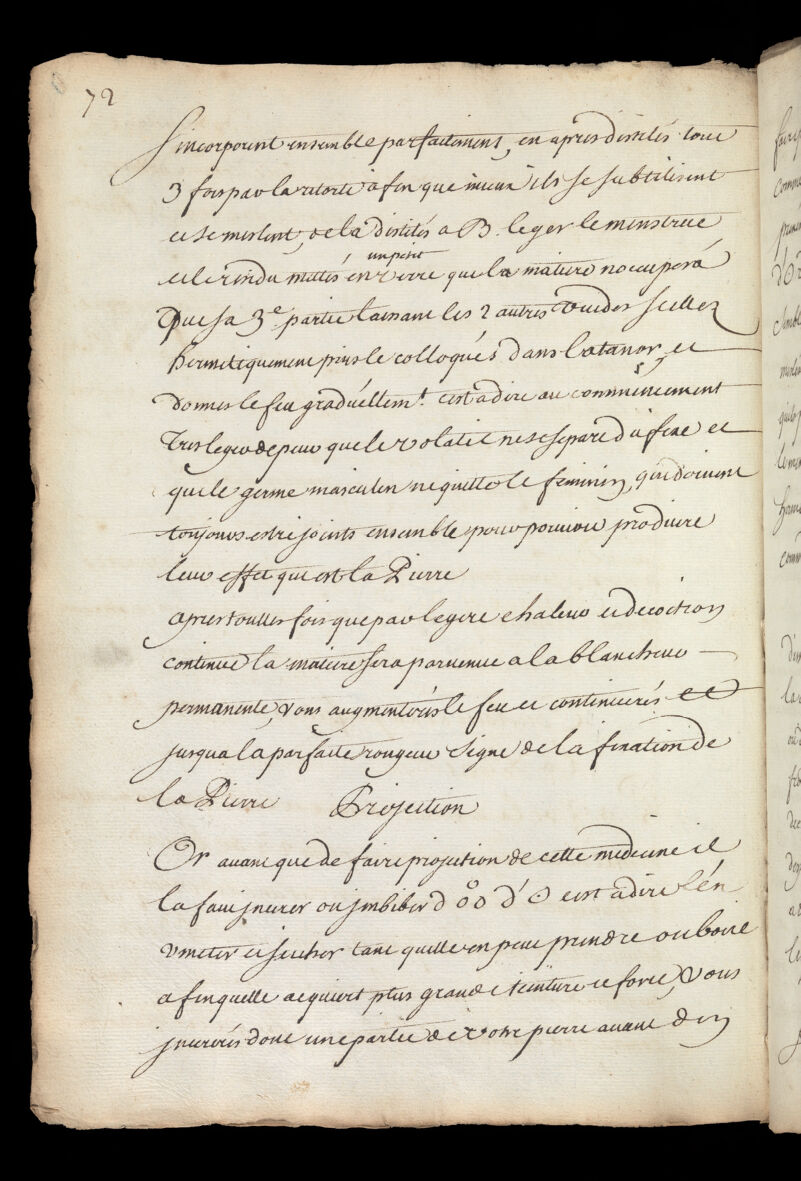 72
s'incorporent ensemble parfaitement, en apres distilés tout
3 fois par la retorte afin que mieux ils se subtilisent
et se meslent, de la distilés a B. leger le menstrue
un petit
et le residu mettés en verre que la matiere n'occupera
que sa 3e partie laissant les 2 autres vuides scellez
hermetiquement puis le colloqués dans l'atanor, et
donnes le feu graduellemt. c'est a dire au commencement
tres leger de peur que le volatil ne se separe du fixe et
que le germe masculin ne quitte le feminin, qui doivent
toujours estre joints ensemble pour pouvoir produire
leur effet qui est la Pierre
apres touttes fois que par legere chaleur et decoction
continue la matiere sera parvenue a la blancheur
permanente, vous augmenterés le feu et continuerés
jusqua la parfaite rougeur signe de la fixation de
la Pierre Projection
Or avant que de faire projection de cette medecine il
la faut incerer ou imbiber d'oo d'O c'est a dire l'en
umecter et secher tant quelle en peut prendre ou boire
afin quelle acquiert plus grande teinture et force, Vous
incererés donc une partie de votre pierre avant d'en